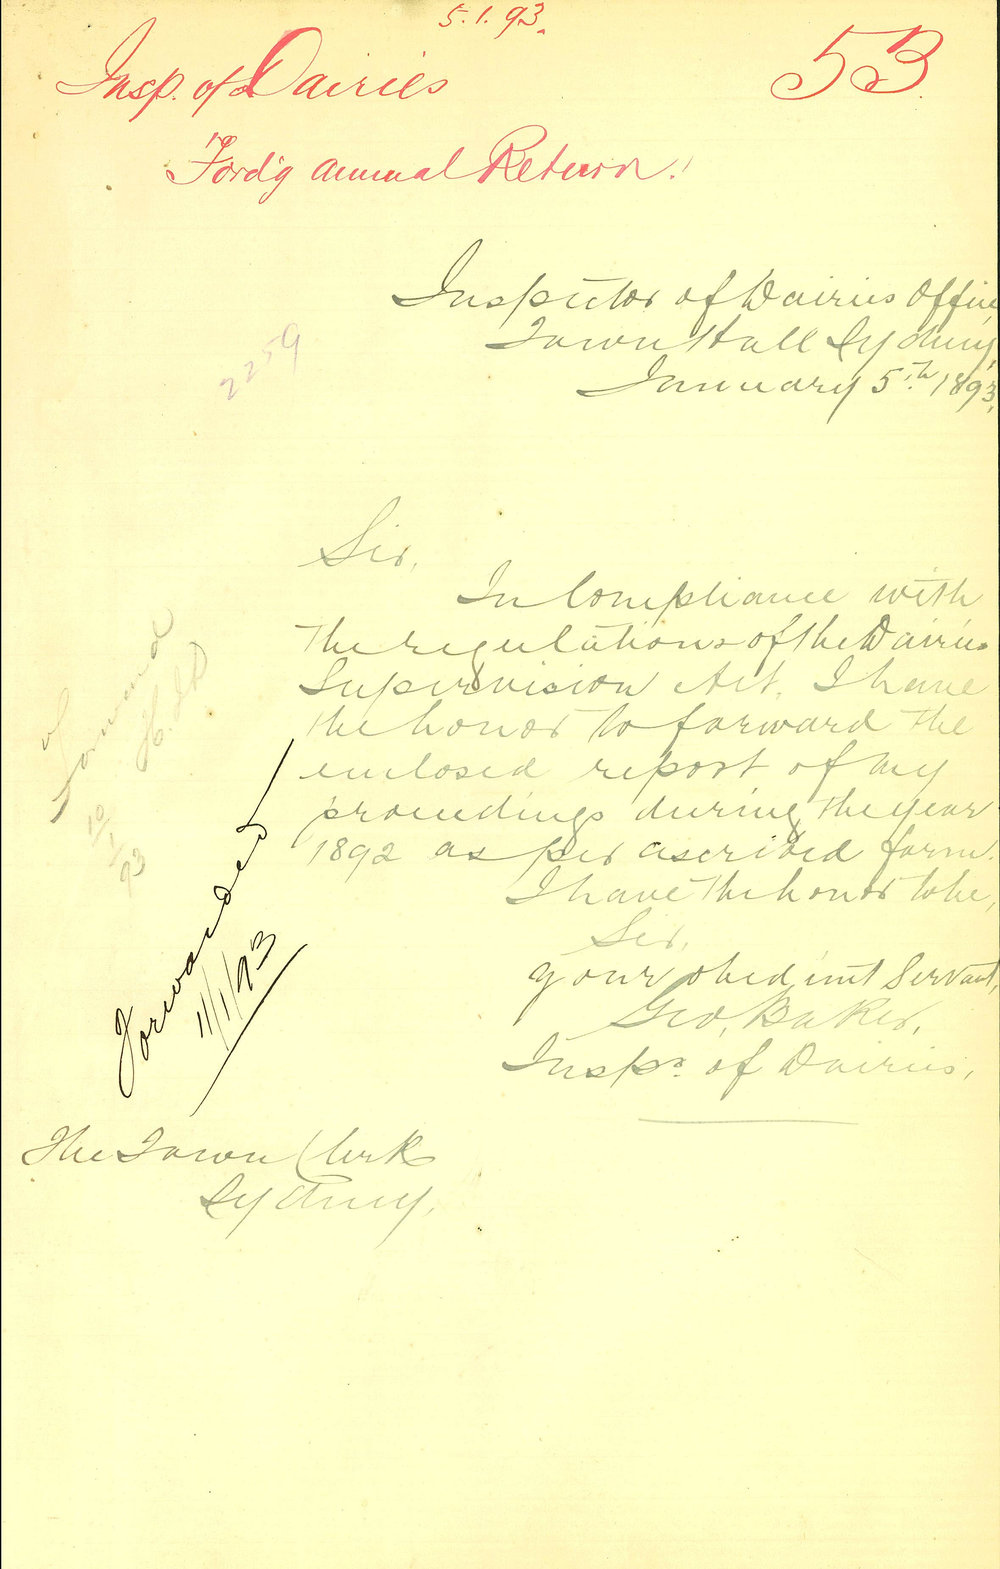 5.1.93.
Insp. of Dairies
53
Ford'g annual Return.
Inspector of Dairies Office,
Town Hall Sydney,
January 5th 1893,
2259
Sir,
In Compliance with
the regulations of the Dairies
Supervision Act. I have
the honor to forward the
enclosed report of my
proceedings during the year
1892 as per ascribed form.
I have the honor to be,
Sir,
your obedient Servant,
Geo, Baker,
Inspr. of Dairies,
Forward
10/1/93
Forwarded
11/1/93
The Town Clerk
Sydney,